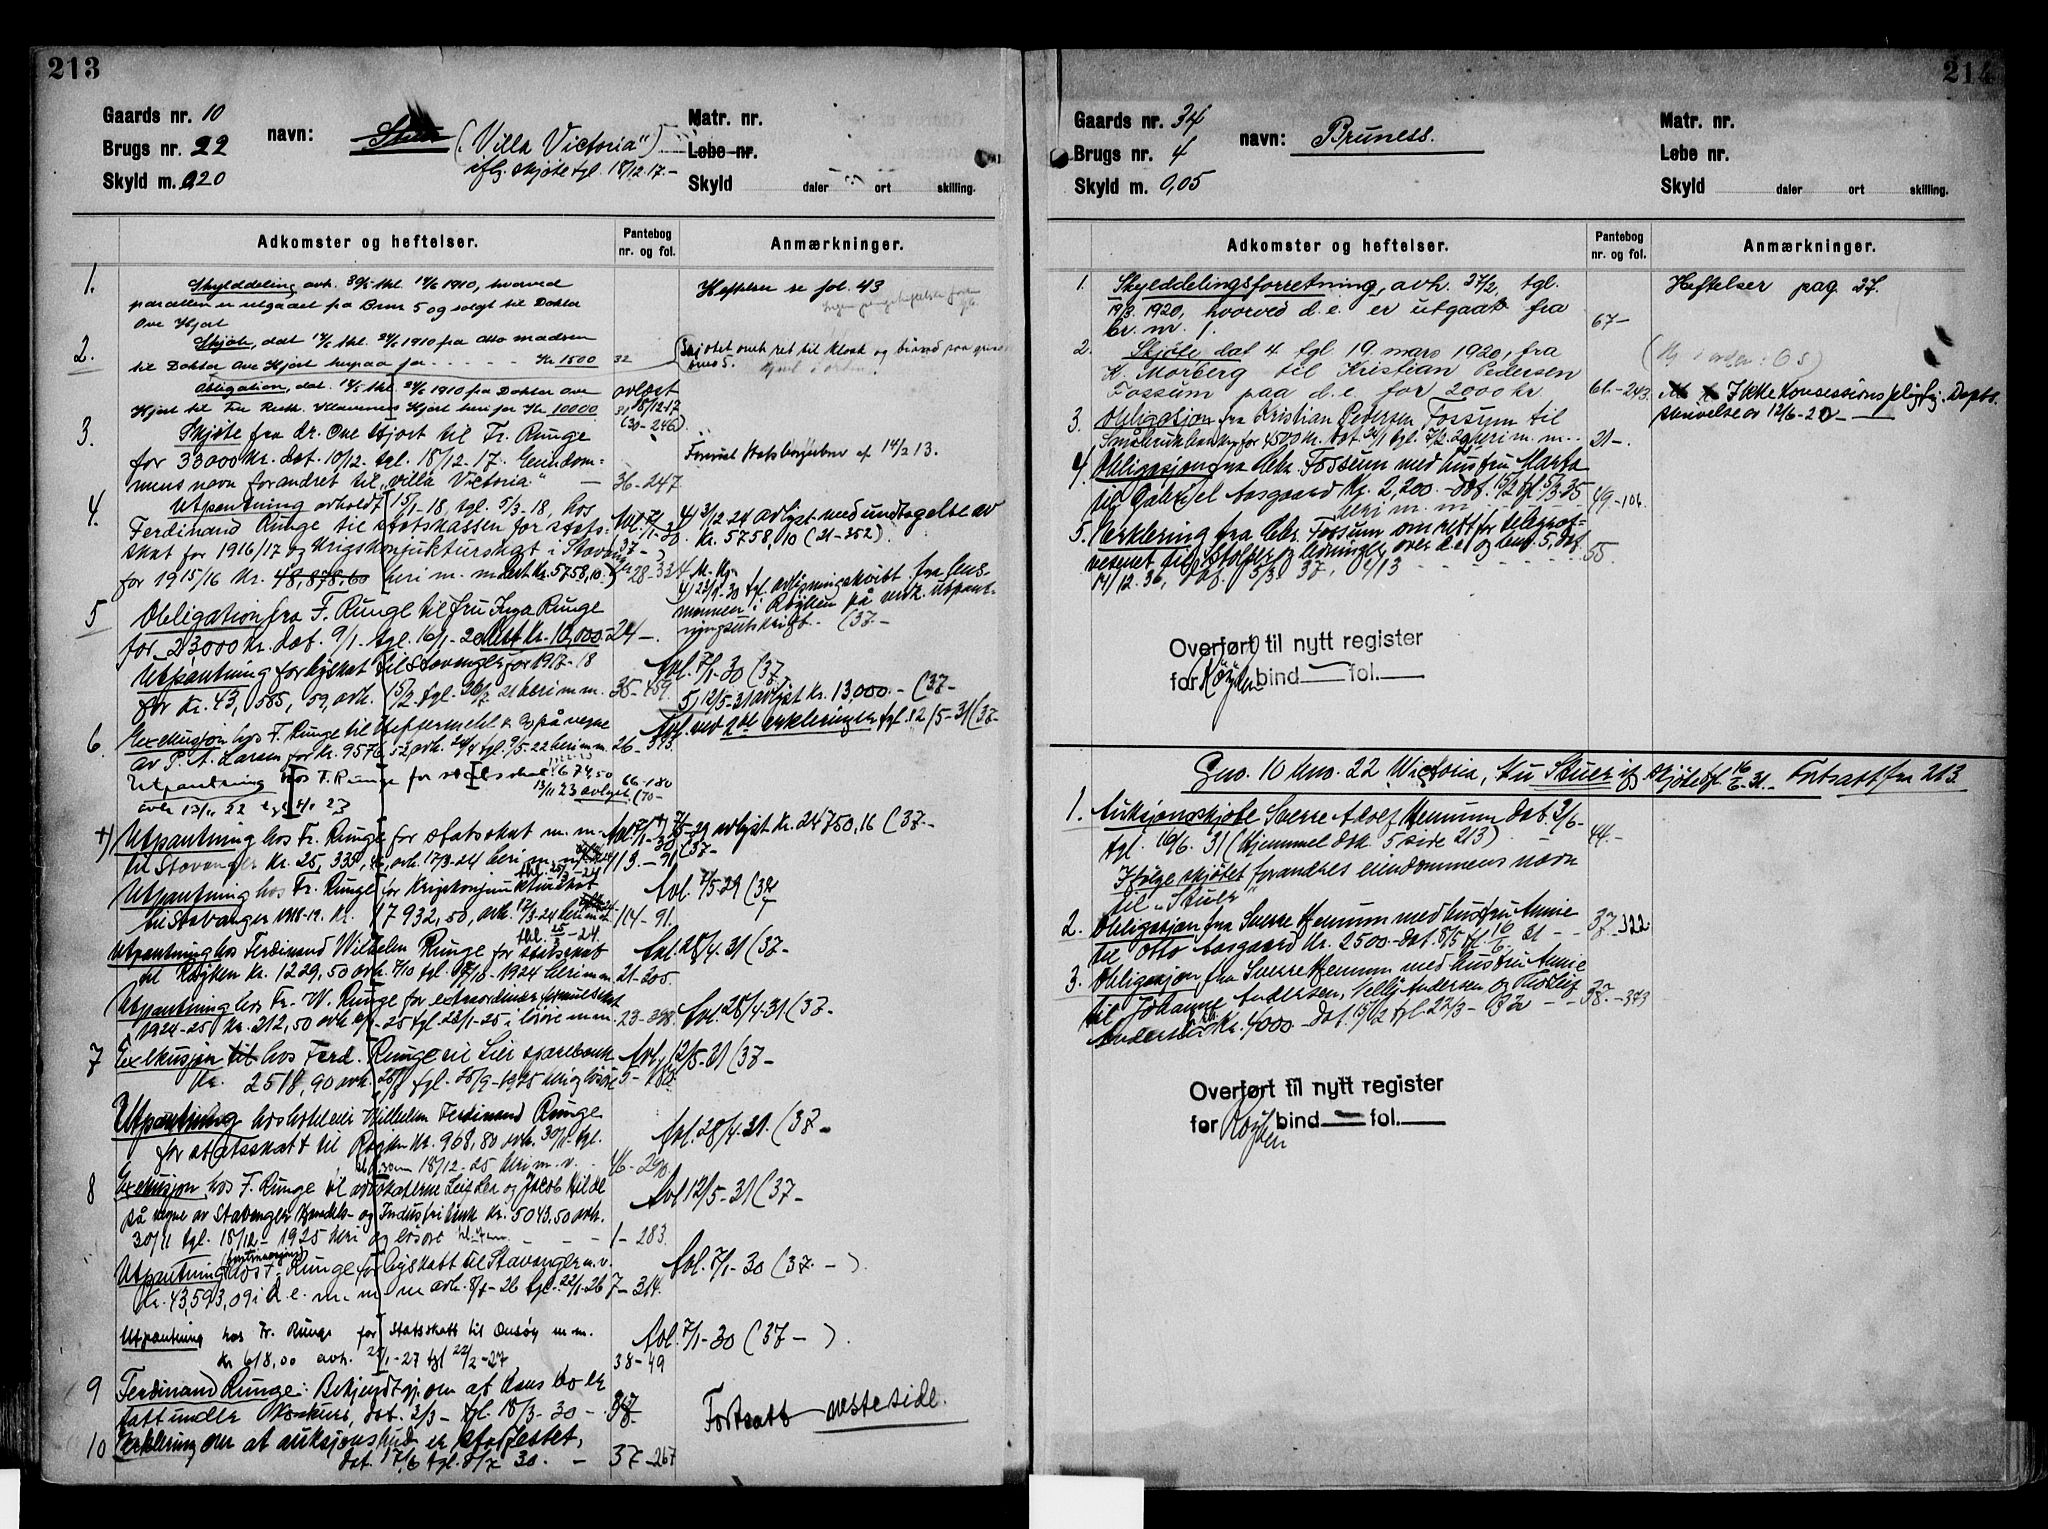 213
Gaards nr. 10
Brugs nr. 22
Skyld m. 0,20
navn: ("Villa Victoria")
iflg. skjøte tgl. 18/12.17.-
Matr. nr.
Løbe nr.
Skyld daler ort skilling.
Adkomster og heftelser.
Pantebog nr. og fol.
Anmærkninger.
1. Skylddeling avh. tkl. 1910, hvorved
parcellen er utgaaet fra Brnr 5 og solgt til Doktor
Ove Hjort
Heftelser se fol. 43
2. Skjøte, dat tkl. 1910 fra Otto Madsen
til Doktor Ove Hjort herpaa for Kr 1500 32
Obligation, dat. 1910 fra Doktor Ove
Hjort til Fru Hjort heri for Kr 10000
avlæst
18/12.17
(30-246)
3. Skjøte fra dr. Ove Hjort til Fr. Runge
for 33000 Kr. dat. 10/12. tgl. 18/12.17. Eiendom-
mens navn forandret til "villa Victoria" - 36-247
Forevist Statsborgerbrev af 14/2 13.
4. Utpantning avholdt 15/1-18, tgl. 5/3-18, hos
Ferdinand Runge til statskassen for stats-
skat for 1916/17 og Krigskonjunkturskat i Stavanger
for 1915/16 Kr. 48,878,60 heri m. m. rest Kr. 5758,10.
Avl. 7/1-30
(37-)
28-324
4) 3/12-24 avlyst med undtagelse av
Kr. 5758,10 (21-252).
4) 23/1-30 tgl. avlysningskvitt. fra lens-
mannen i Røyken på nedk. utpant-
ningsutskrift. (37-
5 Obligation fra F. Runge til fru Inga Runge
for 23000 Kr. dat. 9/1. tgl. 16/1-20 Rest Kr. 10,000- 24-.
Utpantning for byskat til Stavanger for 1917-18
for Kr. 43,585,59, avh. 15/2 tgl. 26/2 21 heri m m. 35-459.
Avl. 7/1-30 (37.
5, 12/5-31 avlyst Kr. 13,000.- (37-
Avl. ved 2de erkleringer tgl. 12/5-31 (37-
6 Exekusjon hos F. Runge til på vegne
av P. A. Larsen for Kr. 9576,52, avh. 24/4 tgl. 9/5-22 heri m m. 26-393.
Utpantning hos F. Runge for statsskat 1674,50 66-180
avh 13/11 22 tgl. 4/1 23
13/11 23 avlyst (70-
Utpantning hos Fr. Runge for statsskat m. m.
til Stavanger Kr. 25,335, avh. 17/3-24 heri m. m. 113.-91.
Avl. 7/1-30 (37-
7/5-29 avlyst Kr. 24750,16 (37-
Utpantning hos Fr. Runge for Krigskonjunkturskat
til Stavanger 1918-19. Kr. 17932,50, avh. 17/3-24 heri m. 114-91.
tkl. 25/3-24.
Avl. 7/5-29 (37
Utpantning hos Ferdinand Wilhelm Runge for statsskat
til Røyken Kr. 1229,50 avh. 7/10 tgl. 1924 heri m m. 21-205.
Avl. 28/4.31 (37-
Utpantning hos Fr. W. Runge for extraordinær formueskat
1924-25 Kr. 212,50 avh 25 tgl. 23/1-25 i løsøre m m. 23-398.
Avl. 28/4-31. (37-
7 Exekusjon til hos Ferd. Runge til Lier sparebank
Kr. 2518,90 avh. tgl. 25/9-1925 heri og løsøre
Avl. 12/5-31 (37-
Utpantning hos hoteleier Wilhelm Ferdinand Runge
for statsskat til Røyken Kr. 968,80 avh. 30/11. tgl.
18/12.25 heri m. v. 46-290.
Avl. 28/4.31. (37-
8 Exekusjon hos F. Runge til advokaterne Leif Lea og Jacob Hilde
på vegne av Stavanger Handels- og Industribank Kr. 5043.50 avh.
30/11 tgl. 18/12-1925 heri og løsøre - - - 1-283.
Avl 12/5-31 (37-
Utpantning hos F. Runge for byskatt til Stavanger m. v.
Kr. 43,593,09 i d. e. m. m avh. 8/7-26 tgl. 22/1-26 7-314.
Avl. 7/1-30 (37.-).
Utpantning hos Fr. Runge for Statsskatt til Onsøy m m.
Kr 618,00 avh. 27/1-27 tgl 22/2-27 38-49
Avl. 7/1-30 (37-).
9 Ferdinand Runge: Bekjendtgj. om at hans bo er
tatt under Konkurs, dat. 3/3- tgl. 18/3-30 -
10 Erklering om at auksjonsbud er stadfestet,
dat. 17/6 tgl. 30. - 37-267
Fortsatt nesteside.
214
Gaards nr. 34
Brugs nr. 4
Skyld m. 0,05
navn: Bruness.
Matr. nr.
Løbe nr.
Skyld daler ort skilling.
Adkomster og heftelser.
Pantebog nr. og fol.
Anmærkninger.
1. Skylddelingsforretning, avh. 27/2, tgl.
19/3. 1920, hvorved d. e. er utgaat fra
br. nr. 1. 67-
Heftelser pag 27.
2. Skjøte dat 4 tgl 19. mars 1920, fra
H. Morberg til Kristian Pedersen
Fossum paa d. e. for 2000 kr 61-243.
Ikke Konsessionspligtig. Depts.
skrivelse av 12/6-20-
3. Obligasjon fra Kristian Pedersen Fossum til
Småbrukbanken for 4500 Kr. dat 24/1 tgl. 7/2.29 heri m. m.- 21-.
4. Obligasjon fra Chr. Fossum med hustru Marta
til Gabriel Aasgaard Kr. 2,200.- dat. 15/2 tgl. 5/3 35
heri m. m. 49-106.
5. Erklering fra Chr. Fossum om rett for telegraf-
vesenet til stolper og ledninger over d. e. og bnr. 5, dat.
14/12.36, tgl. 5/3. 37, 4/13 55.
Overført til nytt register
for Røyken bind - fol. -
Gno. 10 bno. 22 Victoria, nu Stuer iflg skjøte tgl. 16/6-31.- Fortsatt fra 213.
1. Auksjonsskjøte Sverre Adolf Hemnum dat. 3/6-
tgl. 16/6.31 (Hjemmel dok. 5 side 213) 44.-
Ifølge skjøtet forandres eiendommens navn
til "Stuer"
2. Obligasjon fra Sverre Hemnum med hustru Annie
til Otto Aasgaard Kr. 2500- dat. 8/5 tgl. 16/6 31 - - 37-322
3. Obligasjon fra Sverre Hemnum med hustru Annie
til Johanne Andersen, Nelly Andersen og Thorleif
Andersen Kr. 4000.- dat. 15/2 tgl. 23/3-32 - - 38.-373
Overført til nytt register
for Røyken bind - fol. -